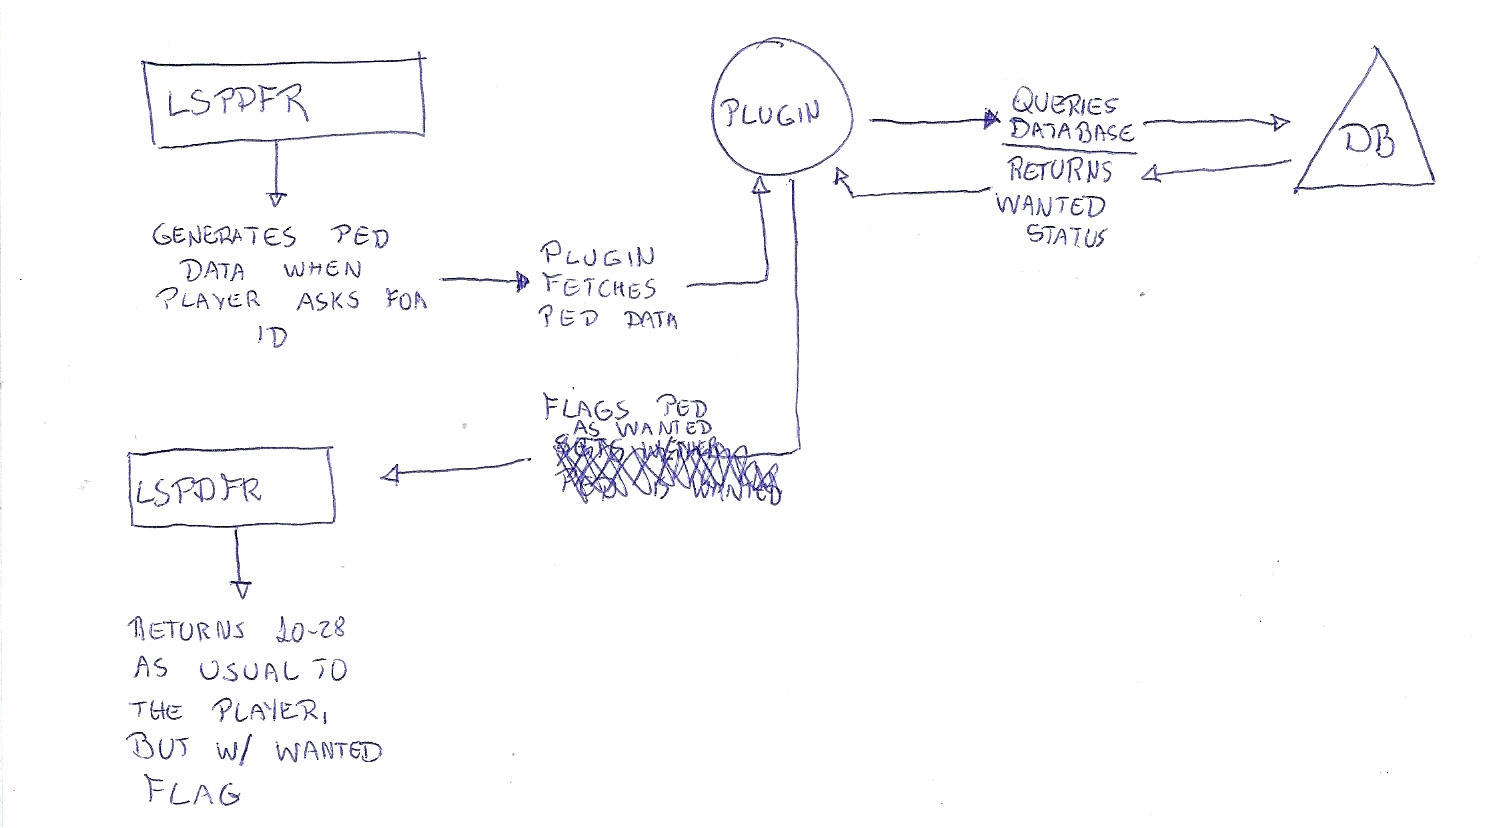 LSPDFR
GENERATES PED
DATA WHEN
PLAYER ASKS FOR
ID
PLUGIN
FETCHES
PED DATA
PLUGIN
QUERIES
DATABASE
RETURNS
WANTED
STATUS
DB
FLAGS PED
AS WANTED
LSPDFR
RETURNS 10-28
AS USUAL TO
THE PLAYER,
BUT W/ WANTED
FLAG